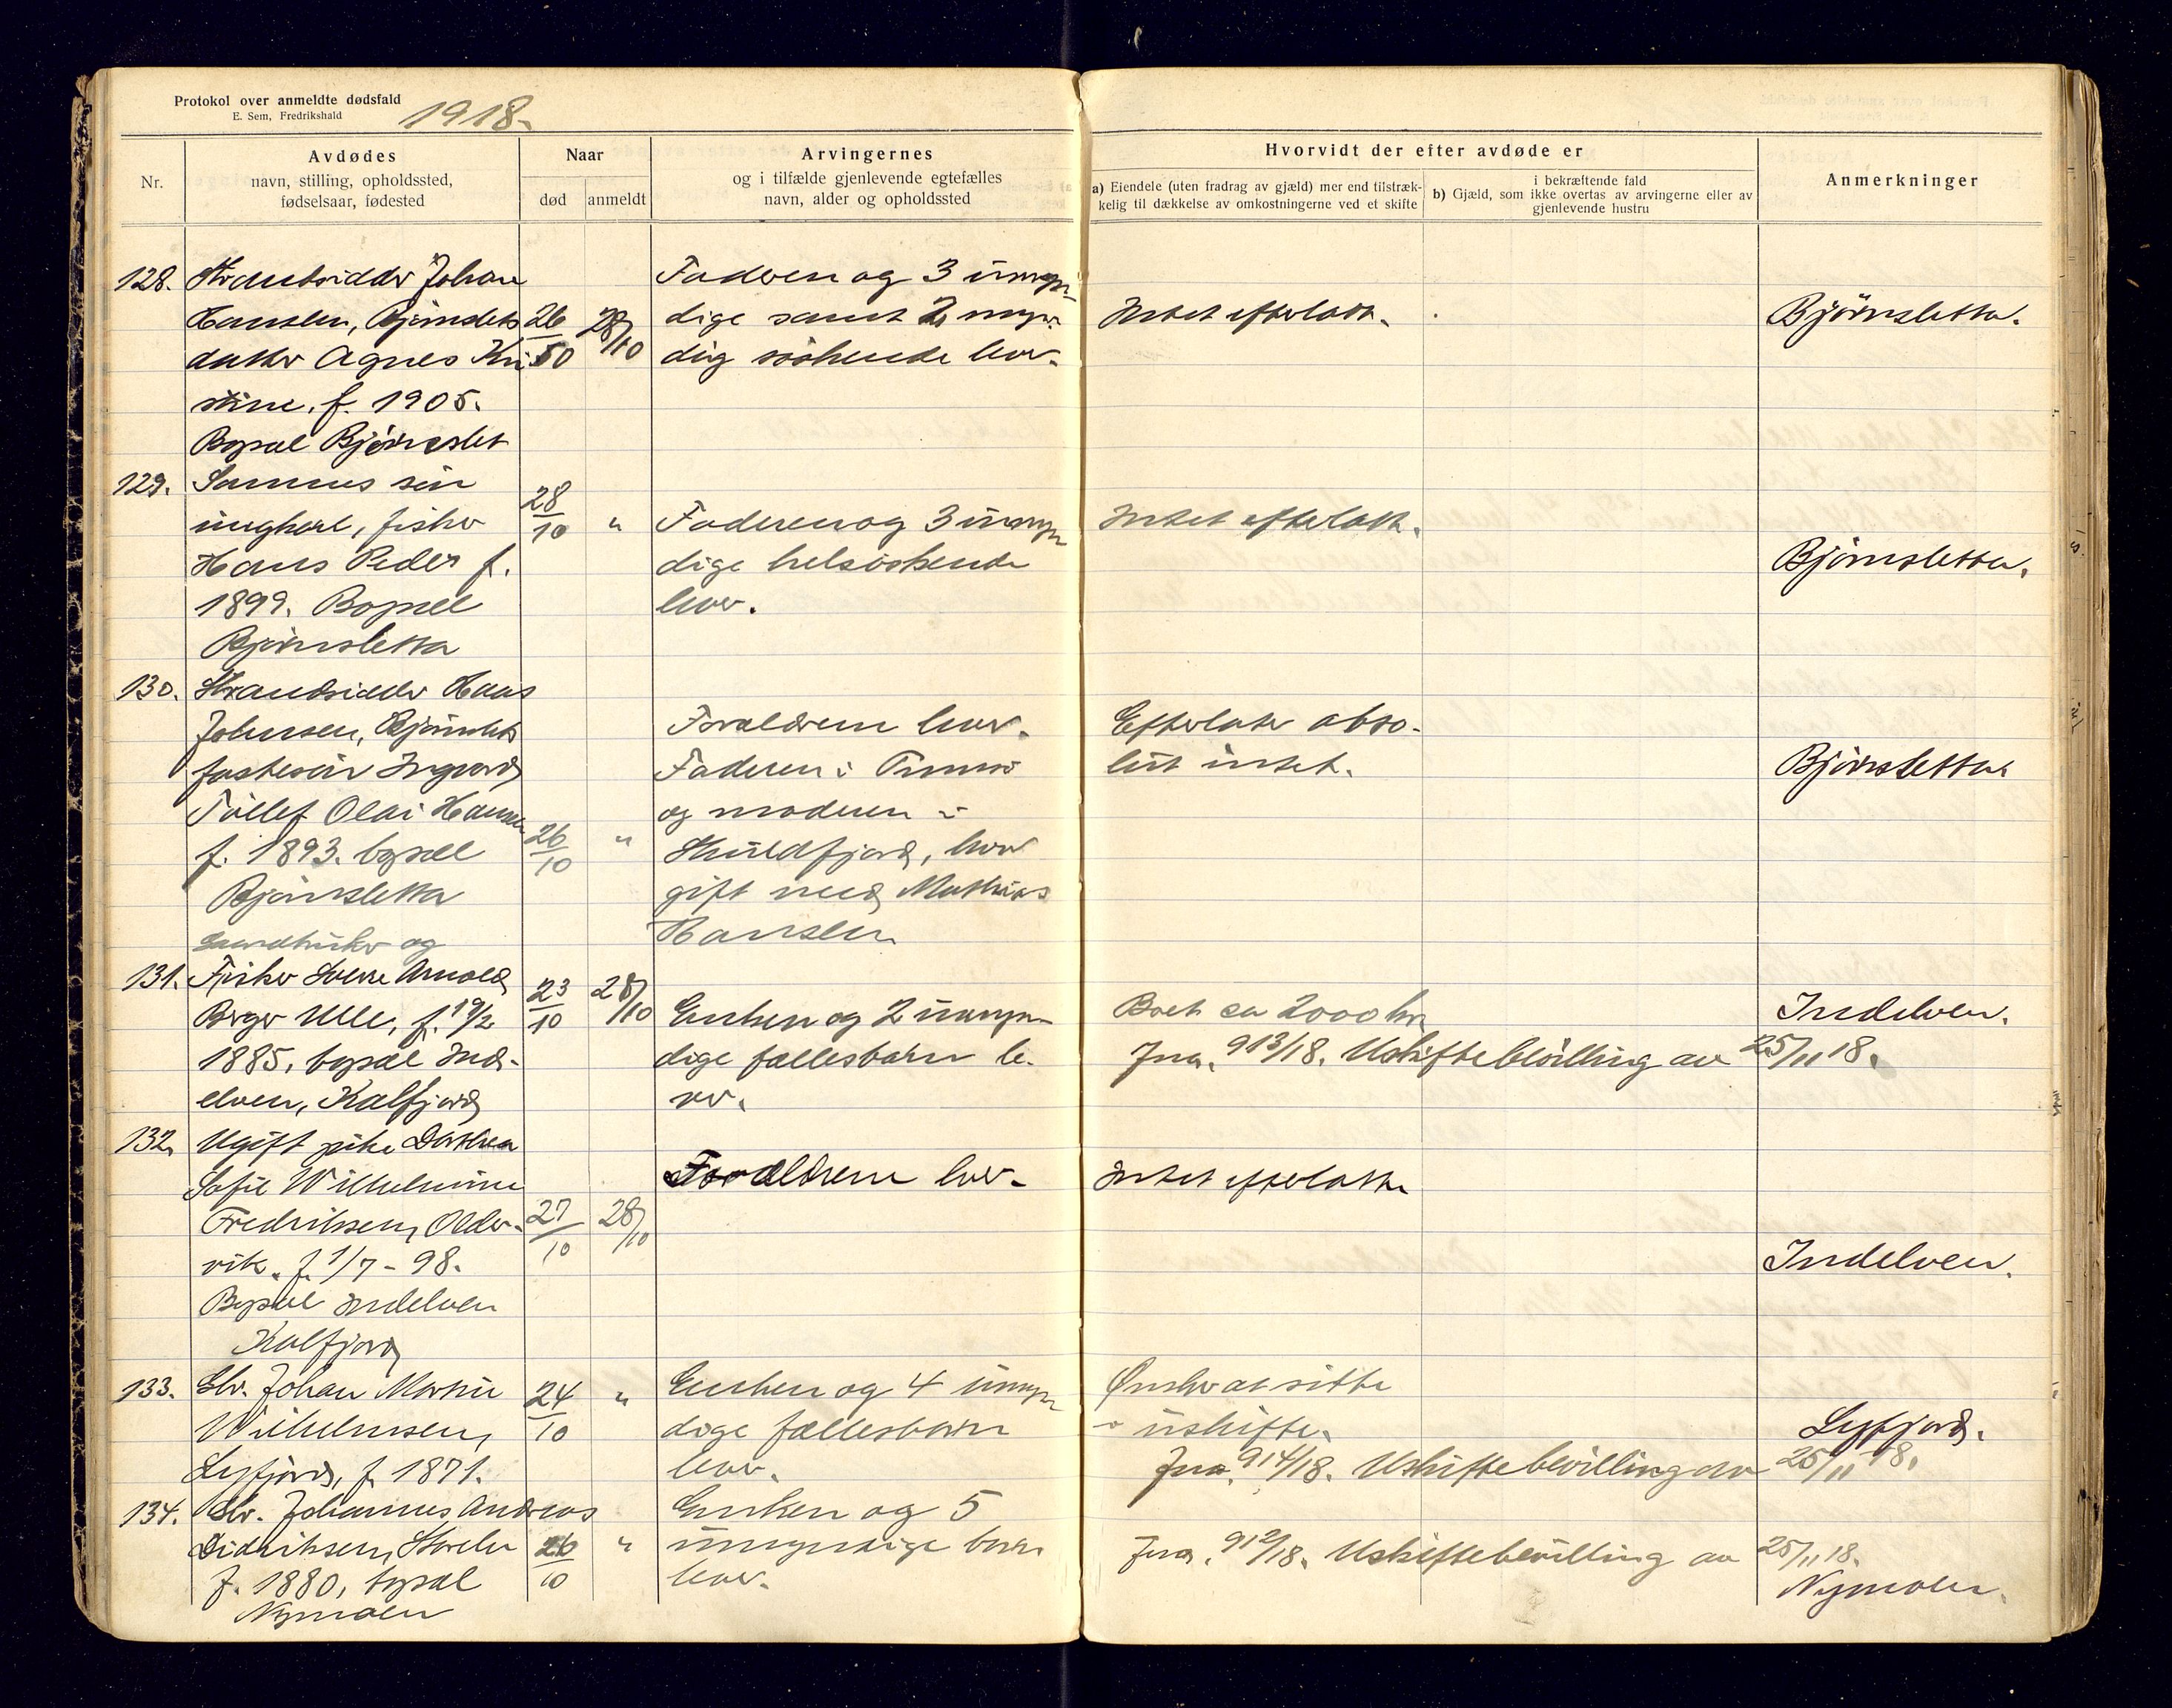 Protokol over anmeldte dødsfald
E. Sem, Fredrikshald
1918.
Nr.
Avdødes
navn, stilling, opholdssted,
fødselsaar, fødested
Naar
død
anmeldt
Arvingernes
og i tilfælde gjenlevende egtefælles
navn, alder og opholdssted
Hvorvidt der efter avdøde er
a) Eiendele (uten fradrag av gjæld) mer end tilstræk-
kelig til dækkelse av omkostningerne ved et skifte
i bekræftende fald
b) Gjæld, som ikke overtas av arvingerne eller av
gjenlevende hustru
Anmerkninger
128. Strandsidder Johan
Hansen, Bjørnslets
datter Agnes Kri
stine. f. 1905.
Bopæl Bjørnslet
26/10
28/10
Faderen og 3 umyn-
dige samt 2 myn-
dig søskende lever.
Intet efterlatt.
Bjørnsletta.
129. Sammes søn
ungkarl, fisker
Hans Peder f.
1899. Bopæl
Bjørnsletta
28/10
"
Faderen og 3 umyn
dige helsøskende
lever.
Intet efterlatt.
Bjørnsletta.
130. Strandsidder Hans
Johnsen, Bjørnslets
fostersøn Ingvard
Tollef Olai Hansen
f. 1893. bopæl
Bjørnsletta
26/10
"
Forældrene lever.
Faderen i Tromsø
og moderen i
Skulsfjord, hvor
gift med Mathias
Hansen
Efterlater abso-
lut intet.
Bjørnsletta.
131. Gaardbruker og
Fisker Sverre Arnold
Berger Ulle, f. 19/2
1885, bopæl Ind-
elven, Kalfjord
23/10
28/10
Enken og 2 umyn-
dige fællesbarn le-
ver.
Boet ca 2000 kr
Jna. 913/18. Uskiftebevilling av 25/11 18.
Indelven.
132. Ugift pike Dorthea
Sofie Wilhelmine
Fredriksen, Older-
vik. f. 1/7-98.
Bopæl Indelven
Kalfjord
27/10
28/10
Forældrene lever.
Intet efterlatt
Indelven.
133. Slv. Johan Martin
Wilhelmsen,
Lyfjord, f. 1871.
24/10
"
Enken og 4 umyn
dige fællesbarn
lever.
Ønsker at sitte
i uskifte.
Jna. 914/18. Uskiftebevilling av 25/11 18.
Lyfjord.
134. Slv. Johannes Andreas
Didriksen, Storelv
f. 1880, bopæl
Nymoen
26/10
"
Enken og 5
umyndige barn
lever.
Jna. 912/18. Uskiftebevilling av 25/11 18.
Nymoen.